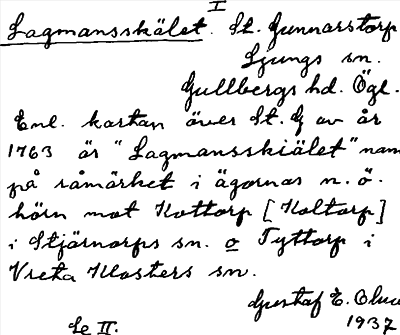 I
Lagmansskälet. St. Gunnarstorp
Ljungs sn.
Gullbergs hd. Ögl.
Enl. kartan över St. G av år
1763 är "Lagmansskiälet" nam
på råmärket i ägornas n.ö.
hörn mot Kottorp [Koltorp]
i Stjärnorps sn. o Tyttorp i
Vreta Klosters sn.
Gustaf E.
1937
Se II.